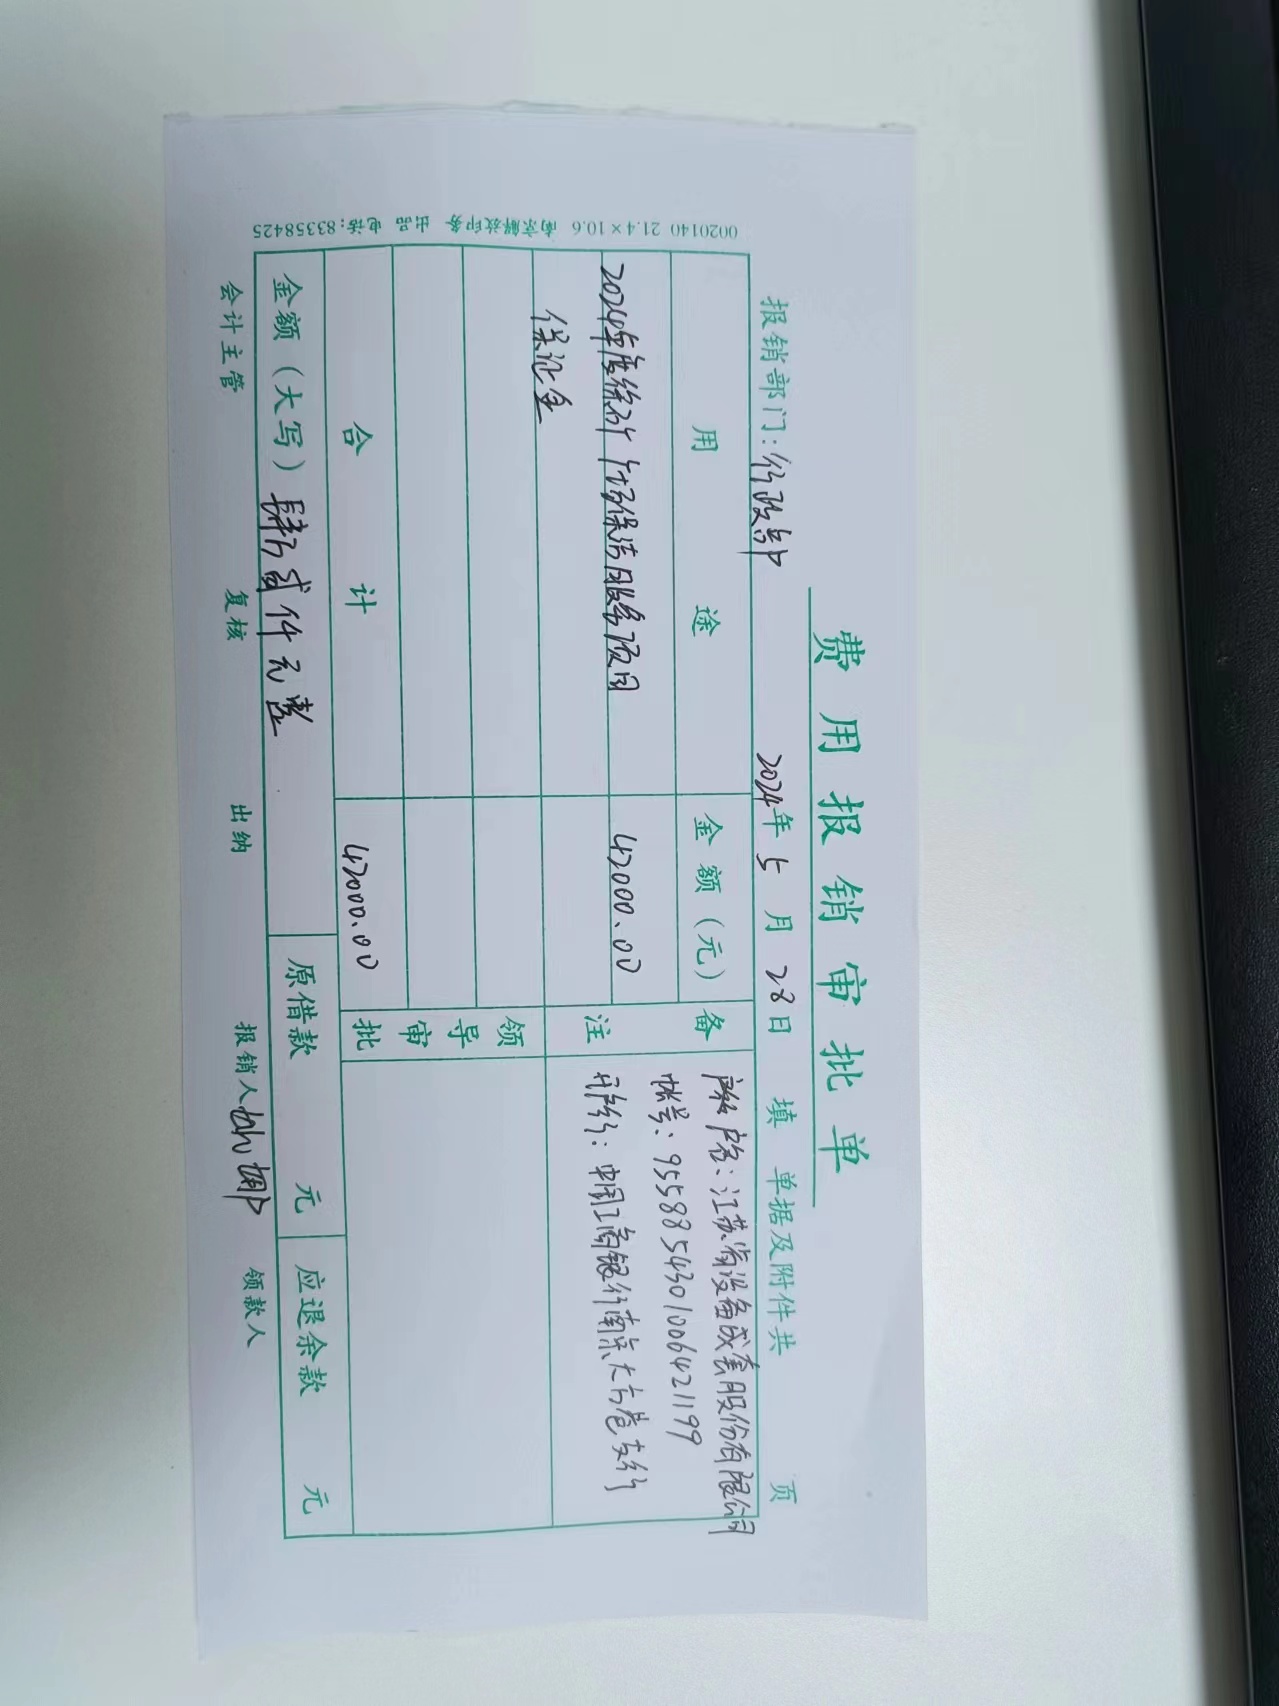 费用报销审批单
报销部门：行政部 2024年5月28日 填 单据及附件共 页
用途 金额（元） 备注
户名：江苏省设备成套股份有限公司
帐号：9558854301006421199
开户行：中国工商银行南京大方巷支行
2024年度徐州 保洁服务项目 42000.00
保证金
领导审批
合计 42000.00
金额（大写）肆万贰仟元整 原借款 元 应退余款 元
会计主管 复核 出纳 报销人 领款人
0020140 21.4×10.6 南京解放印务 出品 电话:83358425